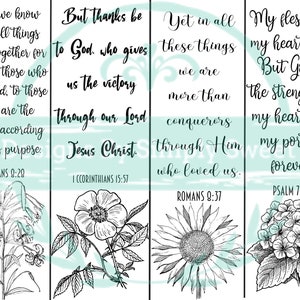 we know
all things
together for
those who
d, to those
are the
according
purpose.
ANS 8:28
But thanks be
to God, who gives
us the victory
through our Lord
Jesus Christ.
1 CORINTHIANS 15:57
Yet in all
these things
we are
more than
conquerors
through Him
who loved us.
ROMANS 8:37
My fles
my hear
But G
the stren
my hear
my por
forever
PSALM 7